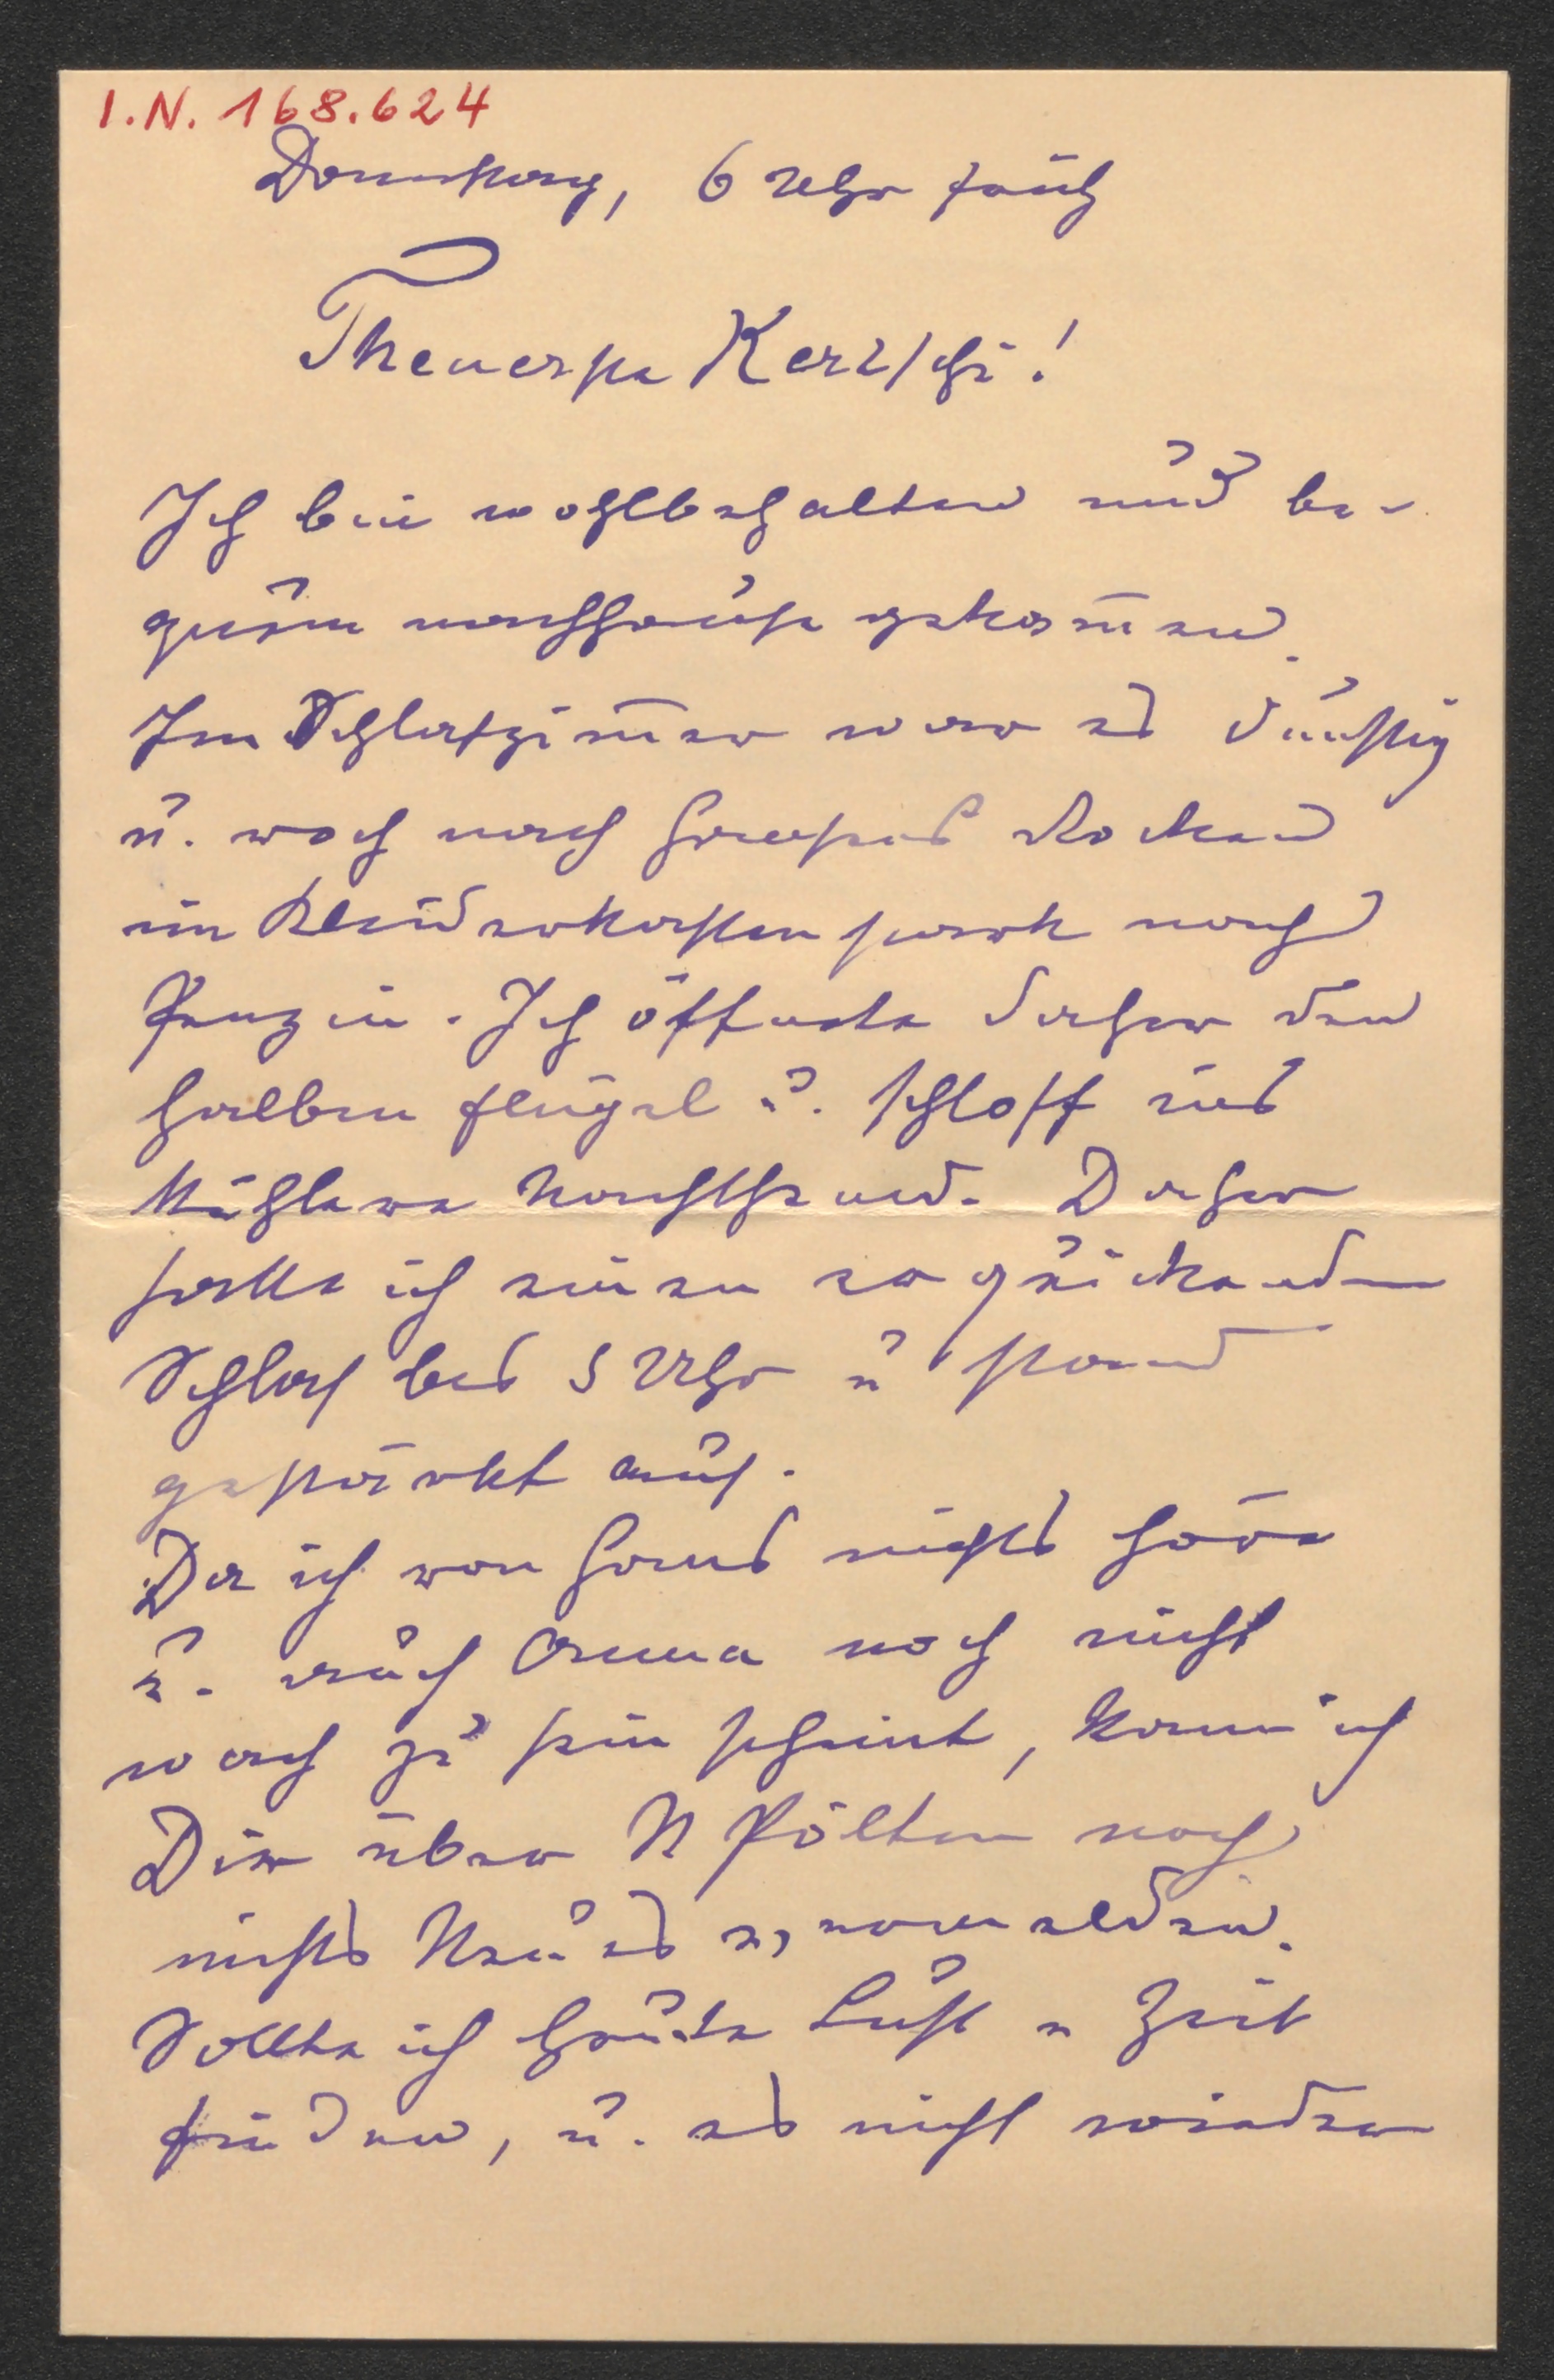 I.N. 168.624
Donnerstag, 6 Uhr früh
Theuerste Kerzlchi!
Ich bin wohlbehalten und be-
quem nachhause gekommen.
Im Schlafzimmer war es dunstig
u. roch nach Hansens Rocken
im Kleiderkasten stark nach
Benzin. Ich öffnete daher den
halben Flügel u. schloff ins
kühlere Nachthemd. Daher
hatte ich einen erquickenden
Schlaf bis 5 Uhr u stand
gestärkt auf.
Da ich von Hans nichts höre
u. auch Anna noch nicht
wach zu sein scheint, kann ich
Dir über St Pölten noch
nichts Neues vermelden.
Sollte ich heute Lust u Zeit
finden, u. es nicht wieder